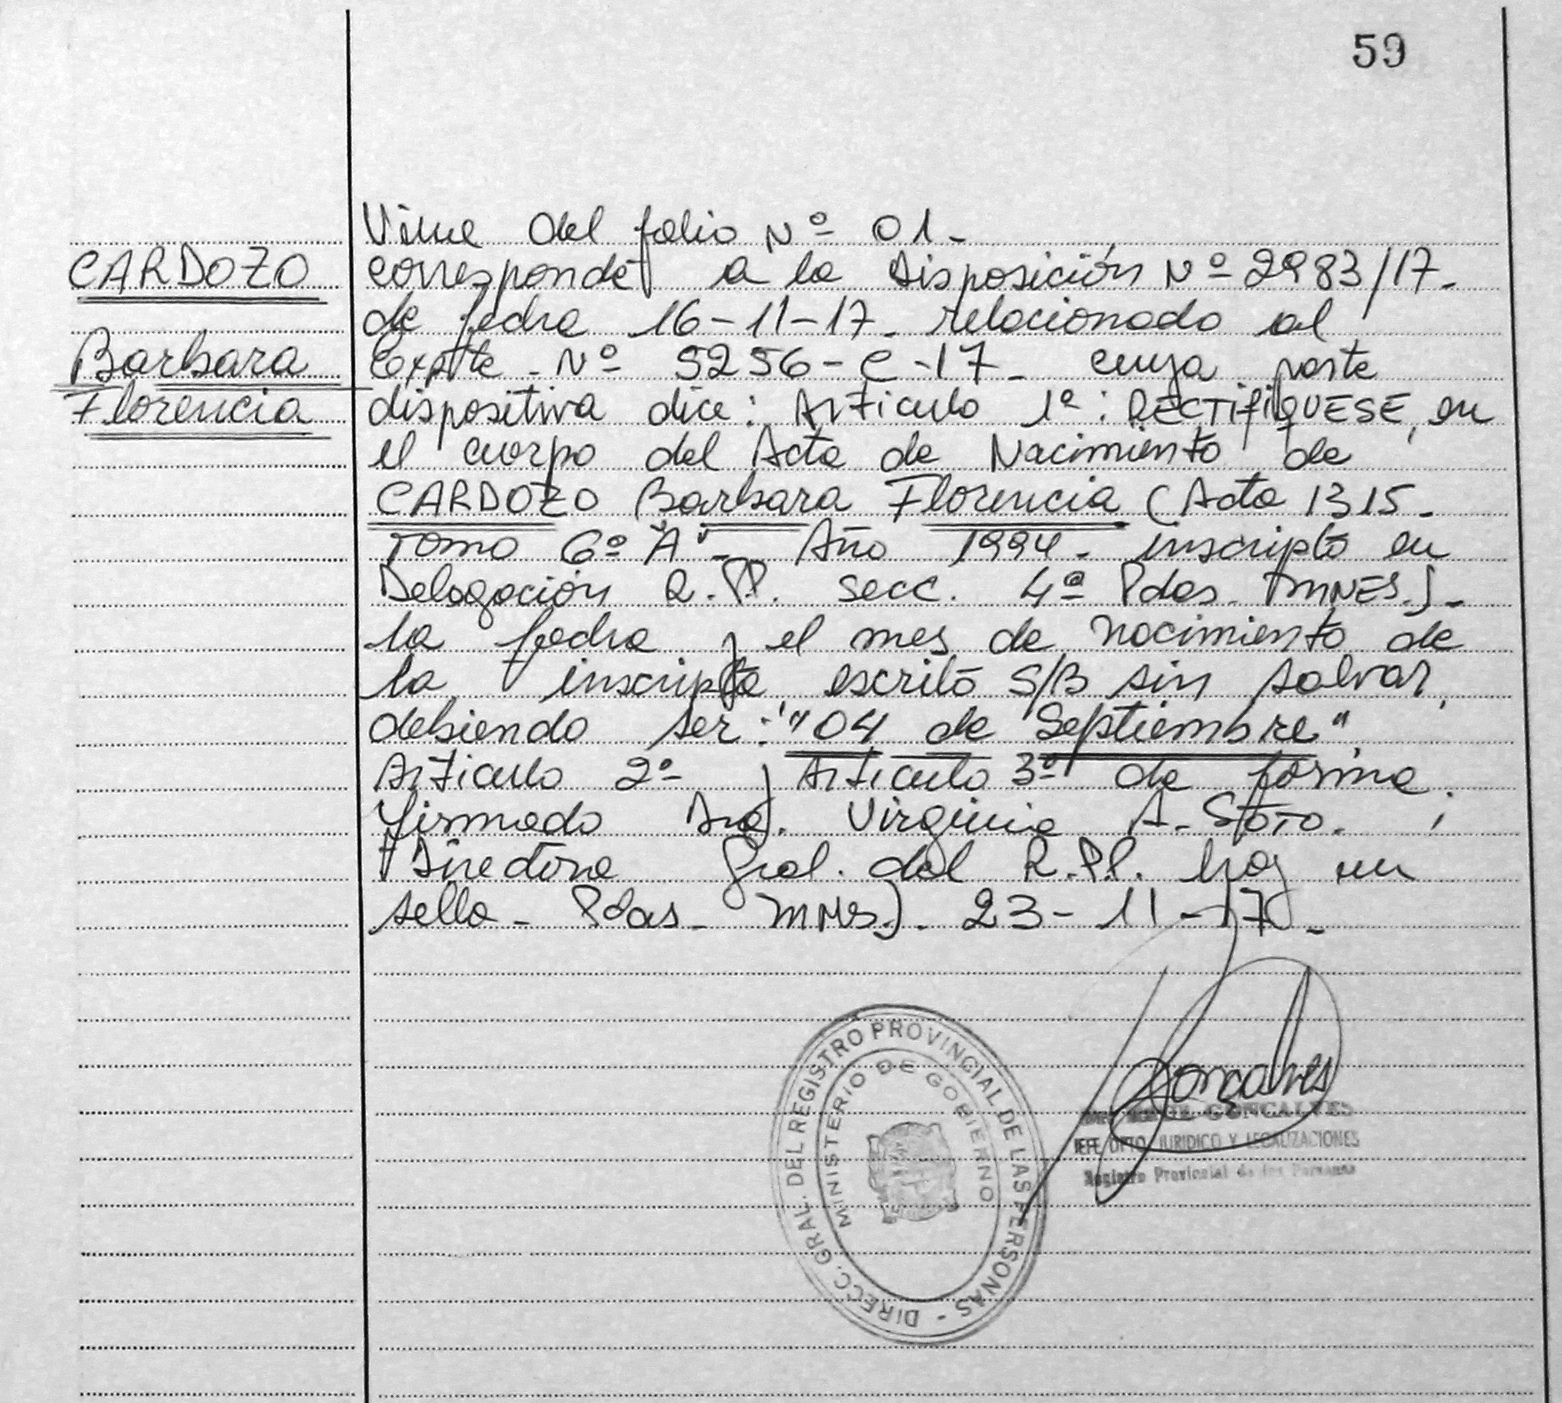 59
CARDOZO
Barbara
Florencia
Viene del folio Nº 01-
corresponde a la Disposición Nº 2983/17-
de fecha 16-11-17- relacionado al
Expte - Nº 5256-C-17- cuya parte
dispositiva dice: Articulo 1º: RECTIFIQUESE, en
el cuerpo del Acta de Nacimiento de
CARDOZO Barbara Florencia (Acta 1315-
Tomo 6º "A"- Año 1994- inscripto en
Delegación R.P.P. Secc. 4ª Pdas. MNES.)-
la fecha y el mes de nacimiento de
la inscripta escrito S/B sin salvar,
debiendo ser: "04 de Septiembre",
Articulo 2º y Articulo 3º de forma.
Firmado Dra. Virginia A. Soto.
Directora Gral. del R.P.P. hay un
sello- Pdas- MNES). 23-11-17-
DIRECC. GRAL. DEL REGISTRO PROVINCIAL DE LAS PERSONAS -
MINISTERIO DE GOBIERNO
Gonçalves
GONCALVES
JEFE DPTO. JURIDICO Y LEGALIZACIONES
Registro Provincial de las Personas